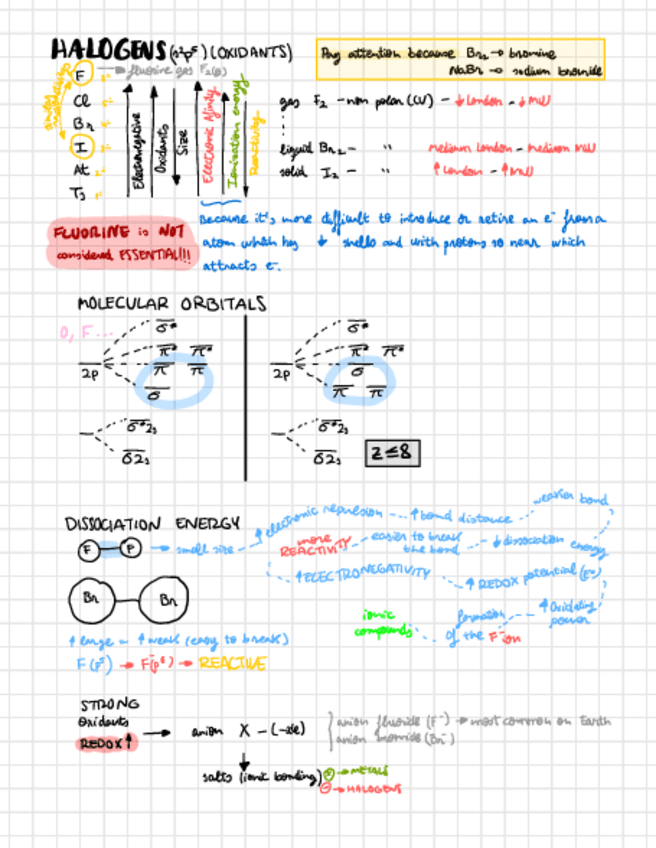 HALOGENS (ns²p⁵) (OXIDANTS)
Pay attention because Br₂ → bromine
NaBr → sodium bromide
F → fluorine gas F₂(g)
Cl
Br
I
At
Ts
Electronegative
Oxidants
Size
Electronic Afinity
Ionization energy
Reactivity
gas F₂ - non polar (CU) - ↓ London - ↓ MW
liquid Br₂ - " medium London - medium MW
solid I₂ - " ↑ London - ↑ MW
FLUORINE is NOT
considered ESSENTIAL!!!
Because it's more difficult to introduce or retire an e⁻ from a
atom which has ↓ shells and with protons so near which
attracts e⁻.
MOLECULAR ORBITALS
O, F...
σ*
π* π*
2p
π π
σ
σ*2s
σ2s
σ*
π* π*
2p
σ
π π
σ*2s
σ2s
z≤8
DISSOCIATION ENERGY
F - F → small size
↑ electronic repulsion - ↑ bond distance - weaker bond
more REACTIVITY - easier to break the bond - ↓ dissociation energy
↑ ELECTRONEGATIVITY → ↑ REDOX potential (E°)
↑ Oxidating power
formation of the F⁻ ion
ionic compounds
Br - Br
↑ large = ↑ weak (easy to break)
F (p⁵) → F⁻(p⁶) → REACTIVE
STRONG
Oxidants
REDOX ↑
→ anion X - (-ide)
anion fluoride (F⁻) → most common on Earth
anion bromide (Br⁻)
salts (ionic bonding)
⊕ → METALS
⊖ → HALOGENS